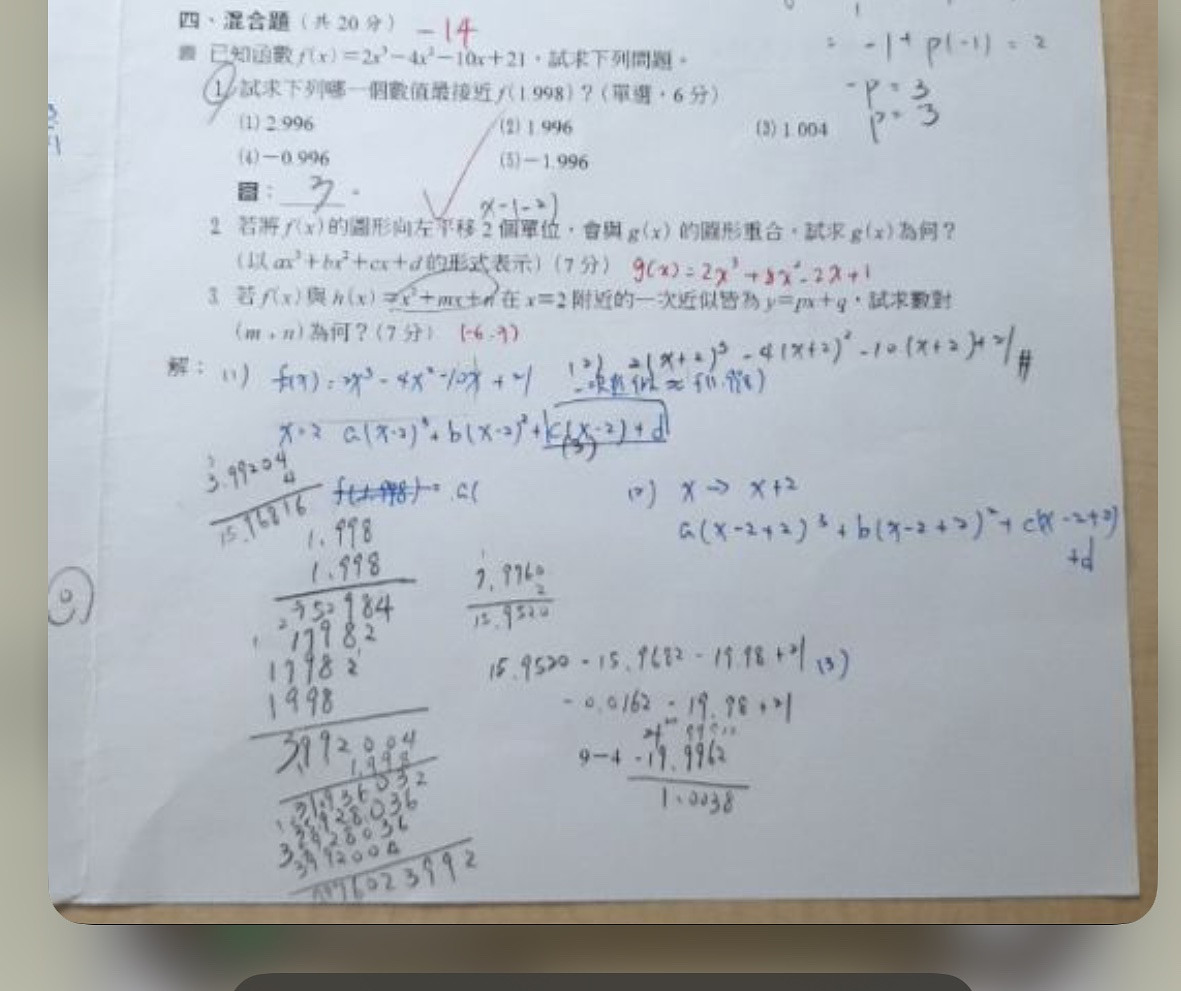 四、混合題(共20分) -14
已知函數 f(x)=2x³-4x²-10x+21,試求下列問題。
= -1+ p(-1) = 2
-p = 3
p = 3
1 試求下列哪一個數值最接近 f(1.998)?(單選,6分)
(1) 2.996 (2) 1.996 (3) 1.004
(4) -0.996 (5) -1.996
答: 3 。
x-(-2)
2 若將 f(x) 的圖形向左平移 2 個單位,會與 g(x) 的圖形重合,試求 g(x) 為何?
(以 ax³+bx²+cx+d 的形式表示)(7分) g(x)=2x³+8x²-2x+1
3 若 f(x) 與 h(x)=x³+mx+n 在 x=2 附近的一次近似皆為 y=px+q,試求數對
(m,n) 為何?(7分) (-6,9)
解: (1) f(x)=2x³-4x²-10x+21 (2) 2(x+2)³-4(x+2)²-10(x+2)+21 #
一次近似 ≈ f(1.998)
x=2 a(x-2)³+b(x-2)²+c(x-2)+d
(3)
3.99204
4
15.96816
f(1.998)= a(
(2) x → x+2
a(x-2+2)³+b(x-2+2)²+c(x-2+2)
+d
1.998
1.998
984
17982
17982
1998
3992004
1.998
7.9760
2
15.9520
15.9520-15.9682-19.98+21 (3)
-0.0162-19.98+21
9-4 -19.9962
1.0038
3992004